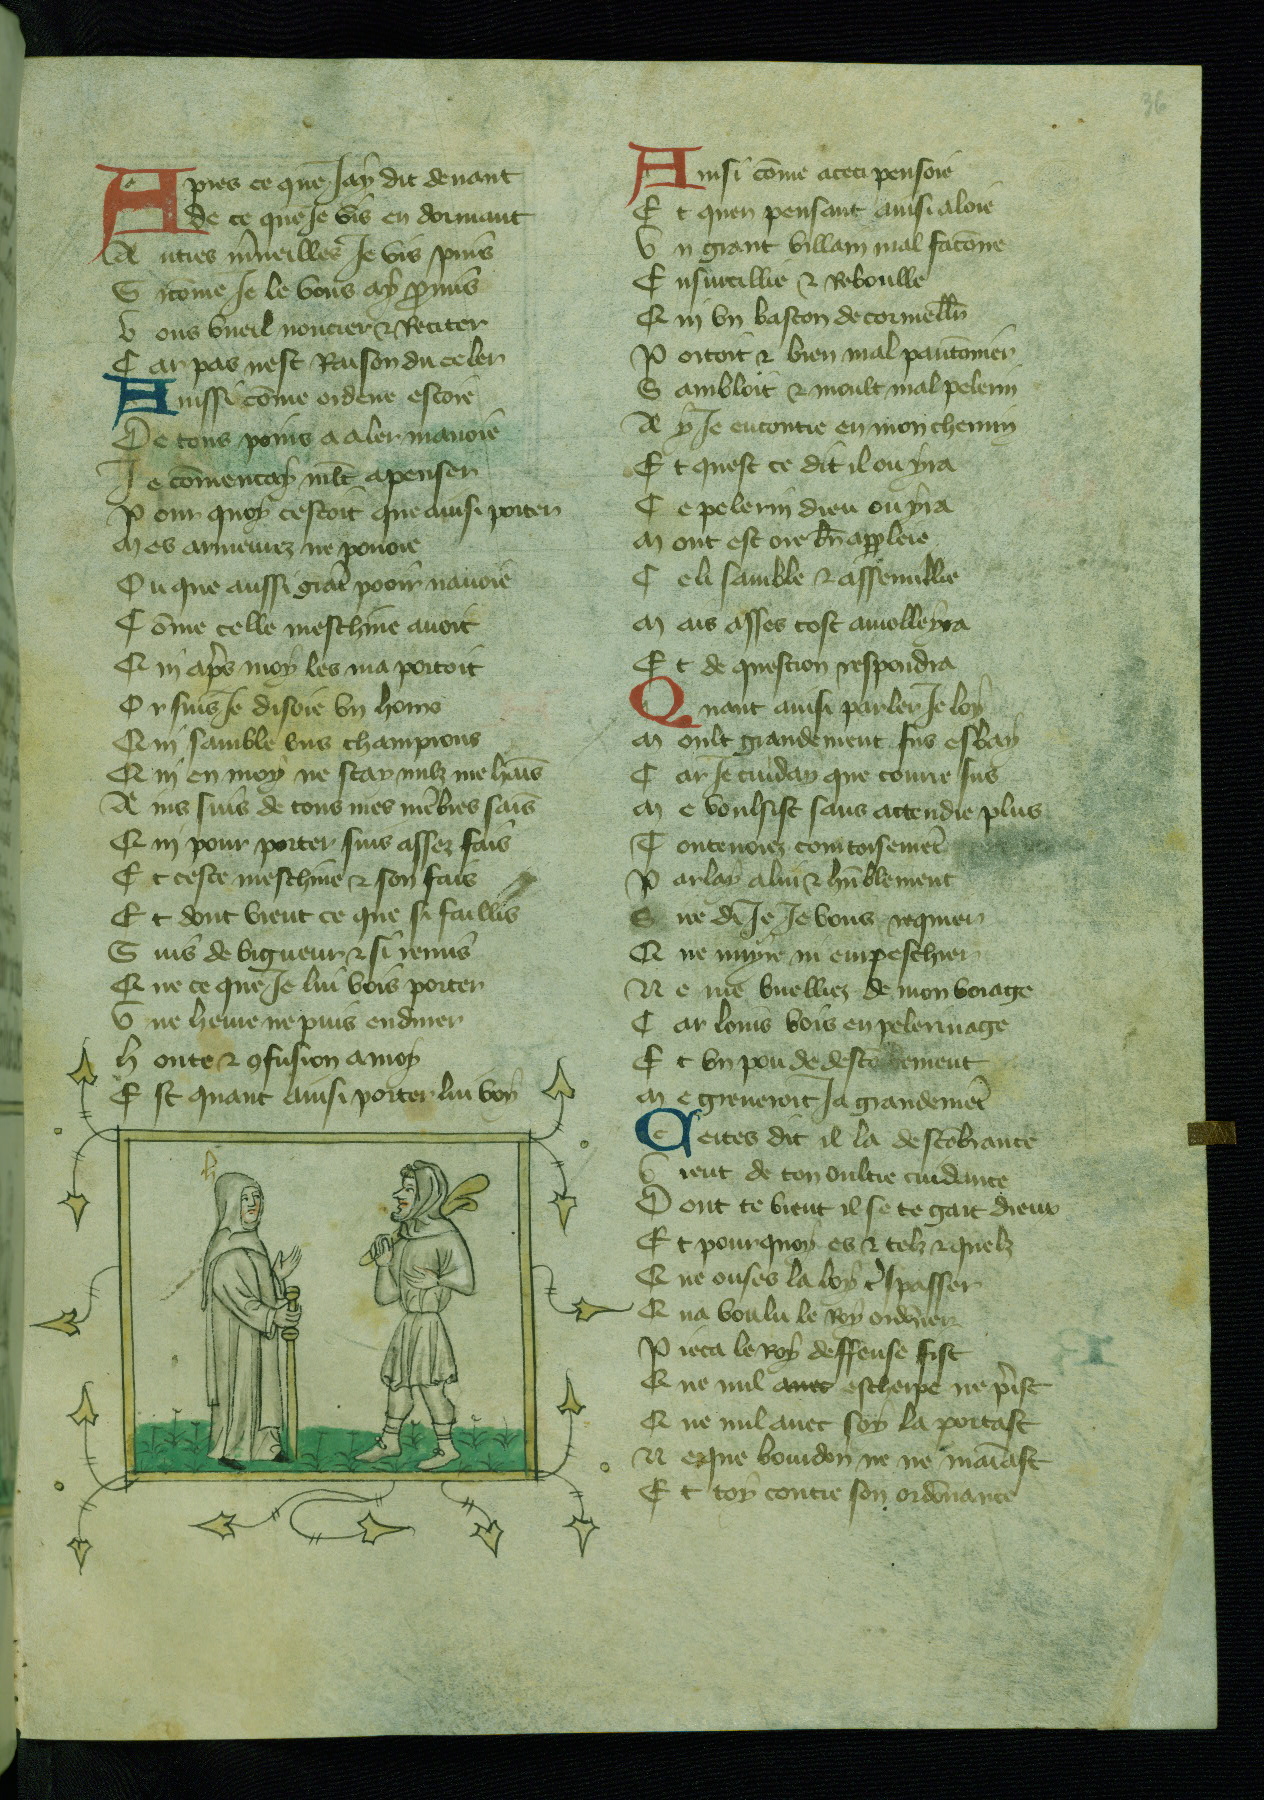 36
Apres ce que Jay dit deuant
de ce que Je vis en dormant
Autres m̄ueilles Je vis puis
Sicōme Je le vous ay p̄mis
Vous vueil noncier & Reciter
Car pas nest Raison du celer
Aussi cōme ordene estoie
De tous poins a aler ma voie
Je cōmencay mlt̄ a penser
Pour quoy cestoit que ainsi porter
Mes armeurez ne pouoie
Ou que aussi grāt pooir nauoie
Cōme celle meschine auoit
Qui ap̄s moy les ma portoit
Or suis Je disoie vn homs
Qui samble vns champions
Qui en moy ne scay nulz mehais̄
Ains suis de tous mes mēbres sais̄
Qui pour porter suis assez fais
Et ceste meschine & son fais
Et dont vient ce que si faillis
Suis de vigueur & si remis
Que ce que Je lui vois porter
Vne heure ne puis endurer
Honte & ꝯfusion a moy
Est quant ainsi porter lui voy
Ainsi cōme a ceci pensoie
Et quen pensant ainsi aloie
Vn grant villain mal facōne
Ensourcillie & Reboulle
Qui vn baston de cormell̄
Portoit & bien mal pautōnier
Sambloit & moult mal pelerin
Ay Je encontre en mon chemin
Et quest ce dit il ou yra
Ce pelerin dieu ou yra
Mont est ore bn̄ apploie
Celi samble & assemillie
Mais asses tost a moi lleyra
Et de question respondra
Quant ainsi parler Je loy
Moult grandement fus esbay
Car Je cuiday que courre sus
Me voulsist sans attendre plus
Toutenoiez courtoisemēt
Parlay a lui & hūblement
Sire di Je Je vous requier
Que nuyre ni empeschier
Ne me vuelliez de mon voiage
Car loins vois en pelerinage
Et vn pou de destourbement
Me greueroit Ja grandemēt
Certes dit il la destorbance
Vient de ton oultre cuidance
Dont te vient il se te gart dieux
Et pourquoy es & telz & quelz
Que ouses la loy tᵉspasser
Qua voulu le roy ordōner
Pieca le Roy deffense fist
Que nul auec escherpe ne p̄ist
Que nul auec soy la portast
Ne que bourdon ne ne maiāst
Et toy contre son ordōnance